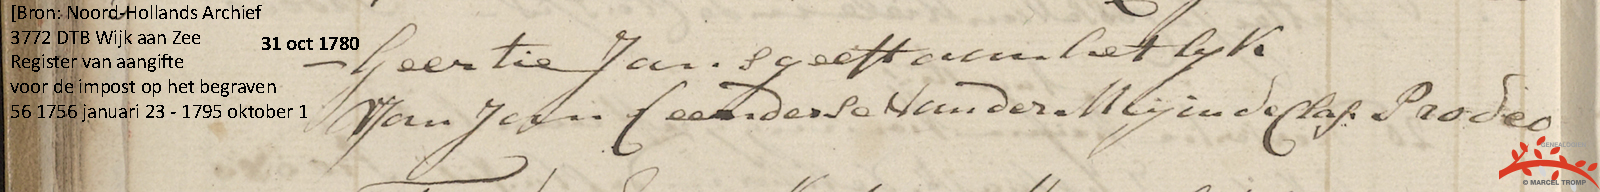 [Bron: Noord-Hollands Archief
3772 DTB Wijk aan Zee
Register van aangifte
voor de impost op het begraven
56 1756 januari 23 - 1795 oktober 1
31 oct 1780
Geertie Jans geeft aan het lyk
Van Jan Leenderse Vander Mij in de Clas. Prodeo
GENEALOGIE
© MARCEL TROMP